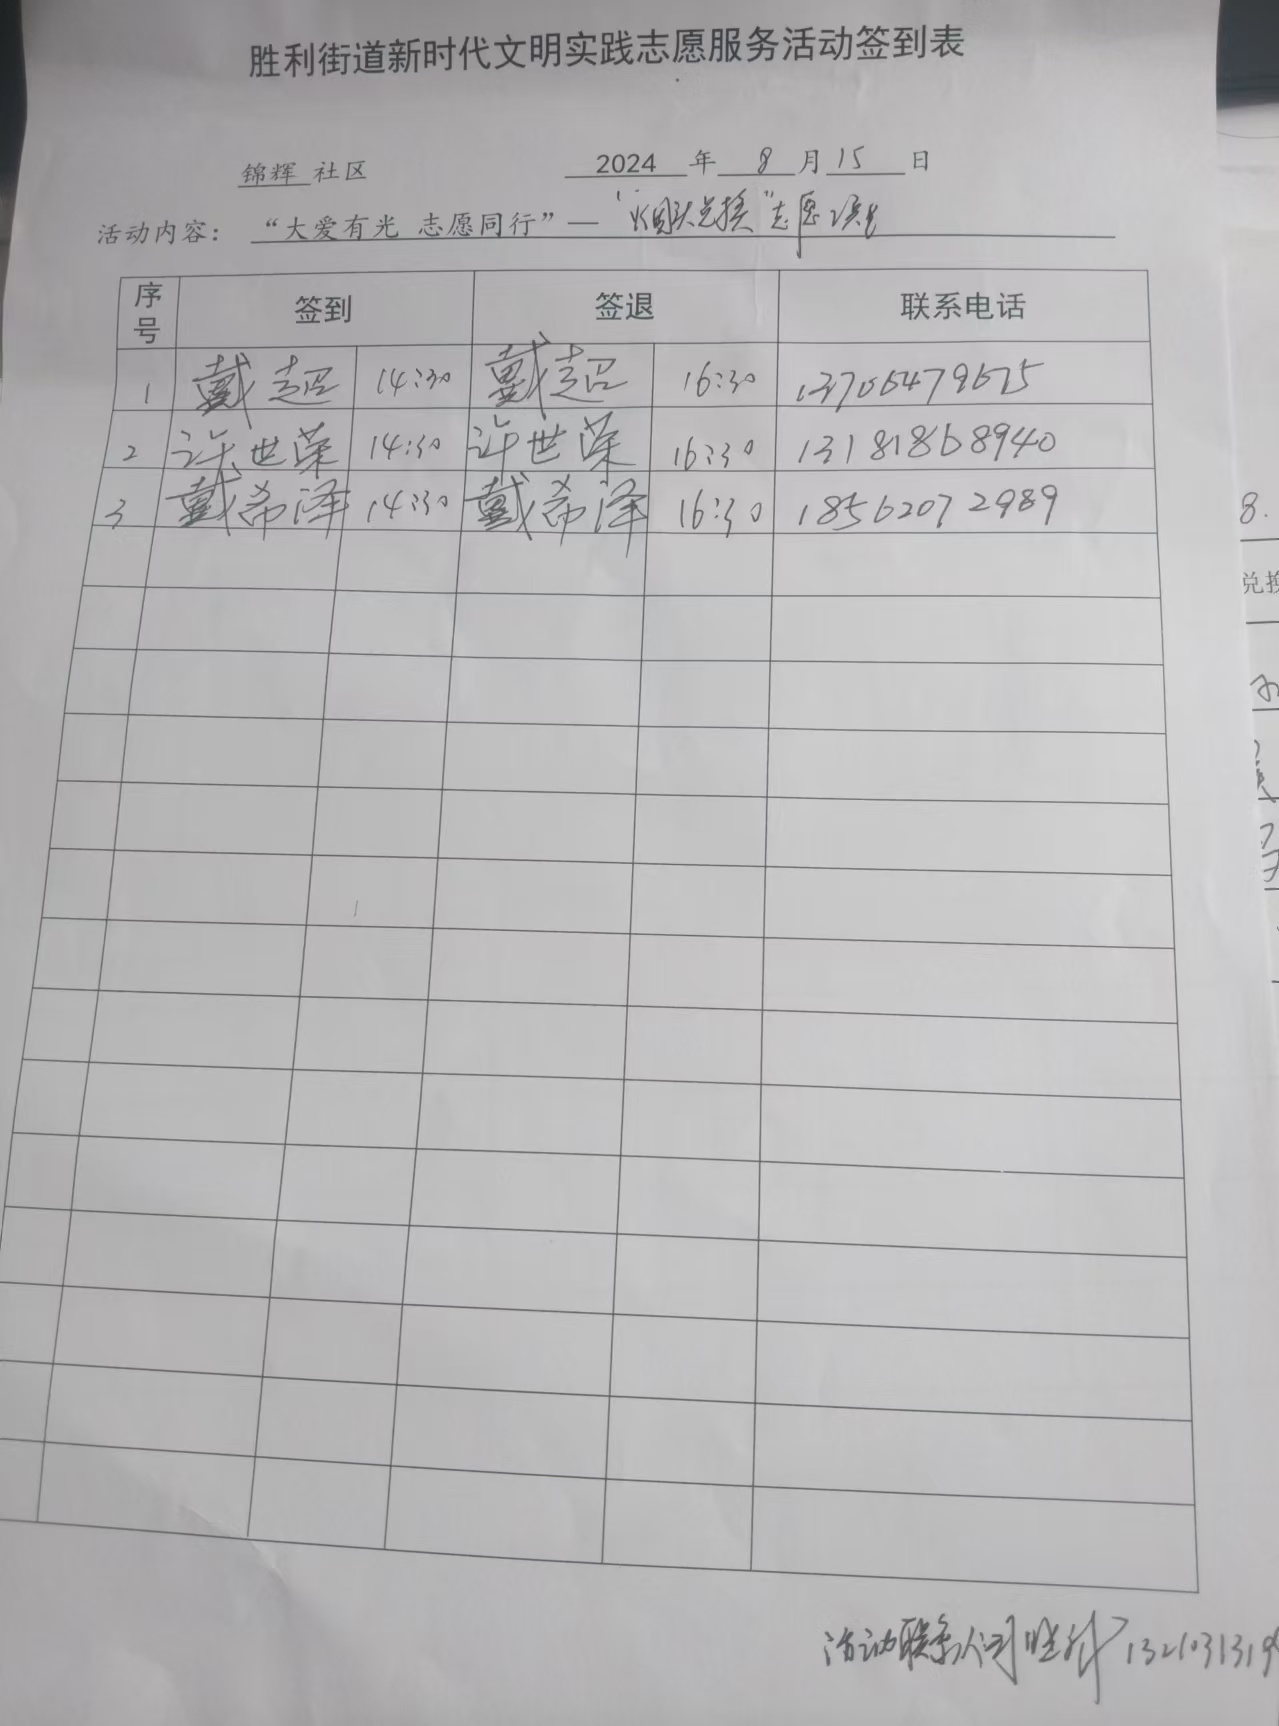 胜利街道新时代文明实践志愿服务活动签到表
锦辉 社区 2024 年 8 月 15 日
活动内容： “大爱有光 志愿同行”— “烟头兑换”志愿
序号 签到 签退 联系电话
1 戴超 14:30 戴超 16:30 13706479675
2 许世荣 14:30 许世荣 16:30 13181868940
3 戴希泽 14:30 戴希泽 16:30 18562072989
活动联系人 1321031319
8.
兑换